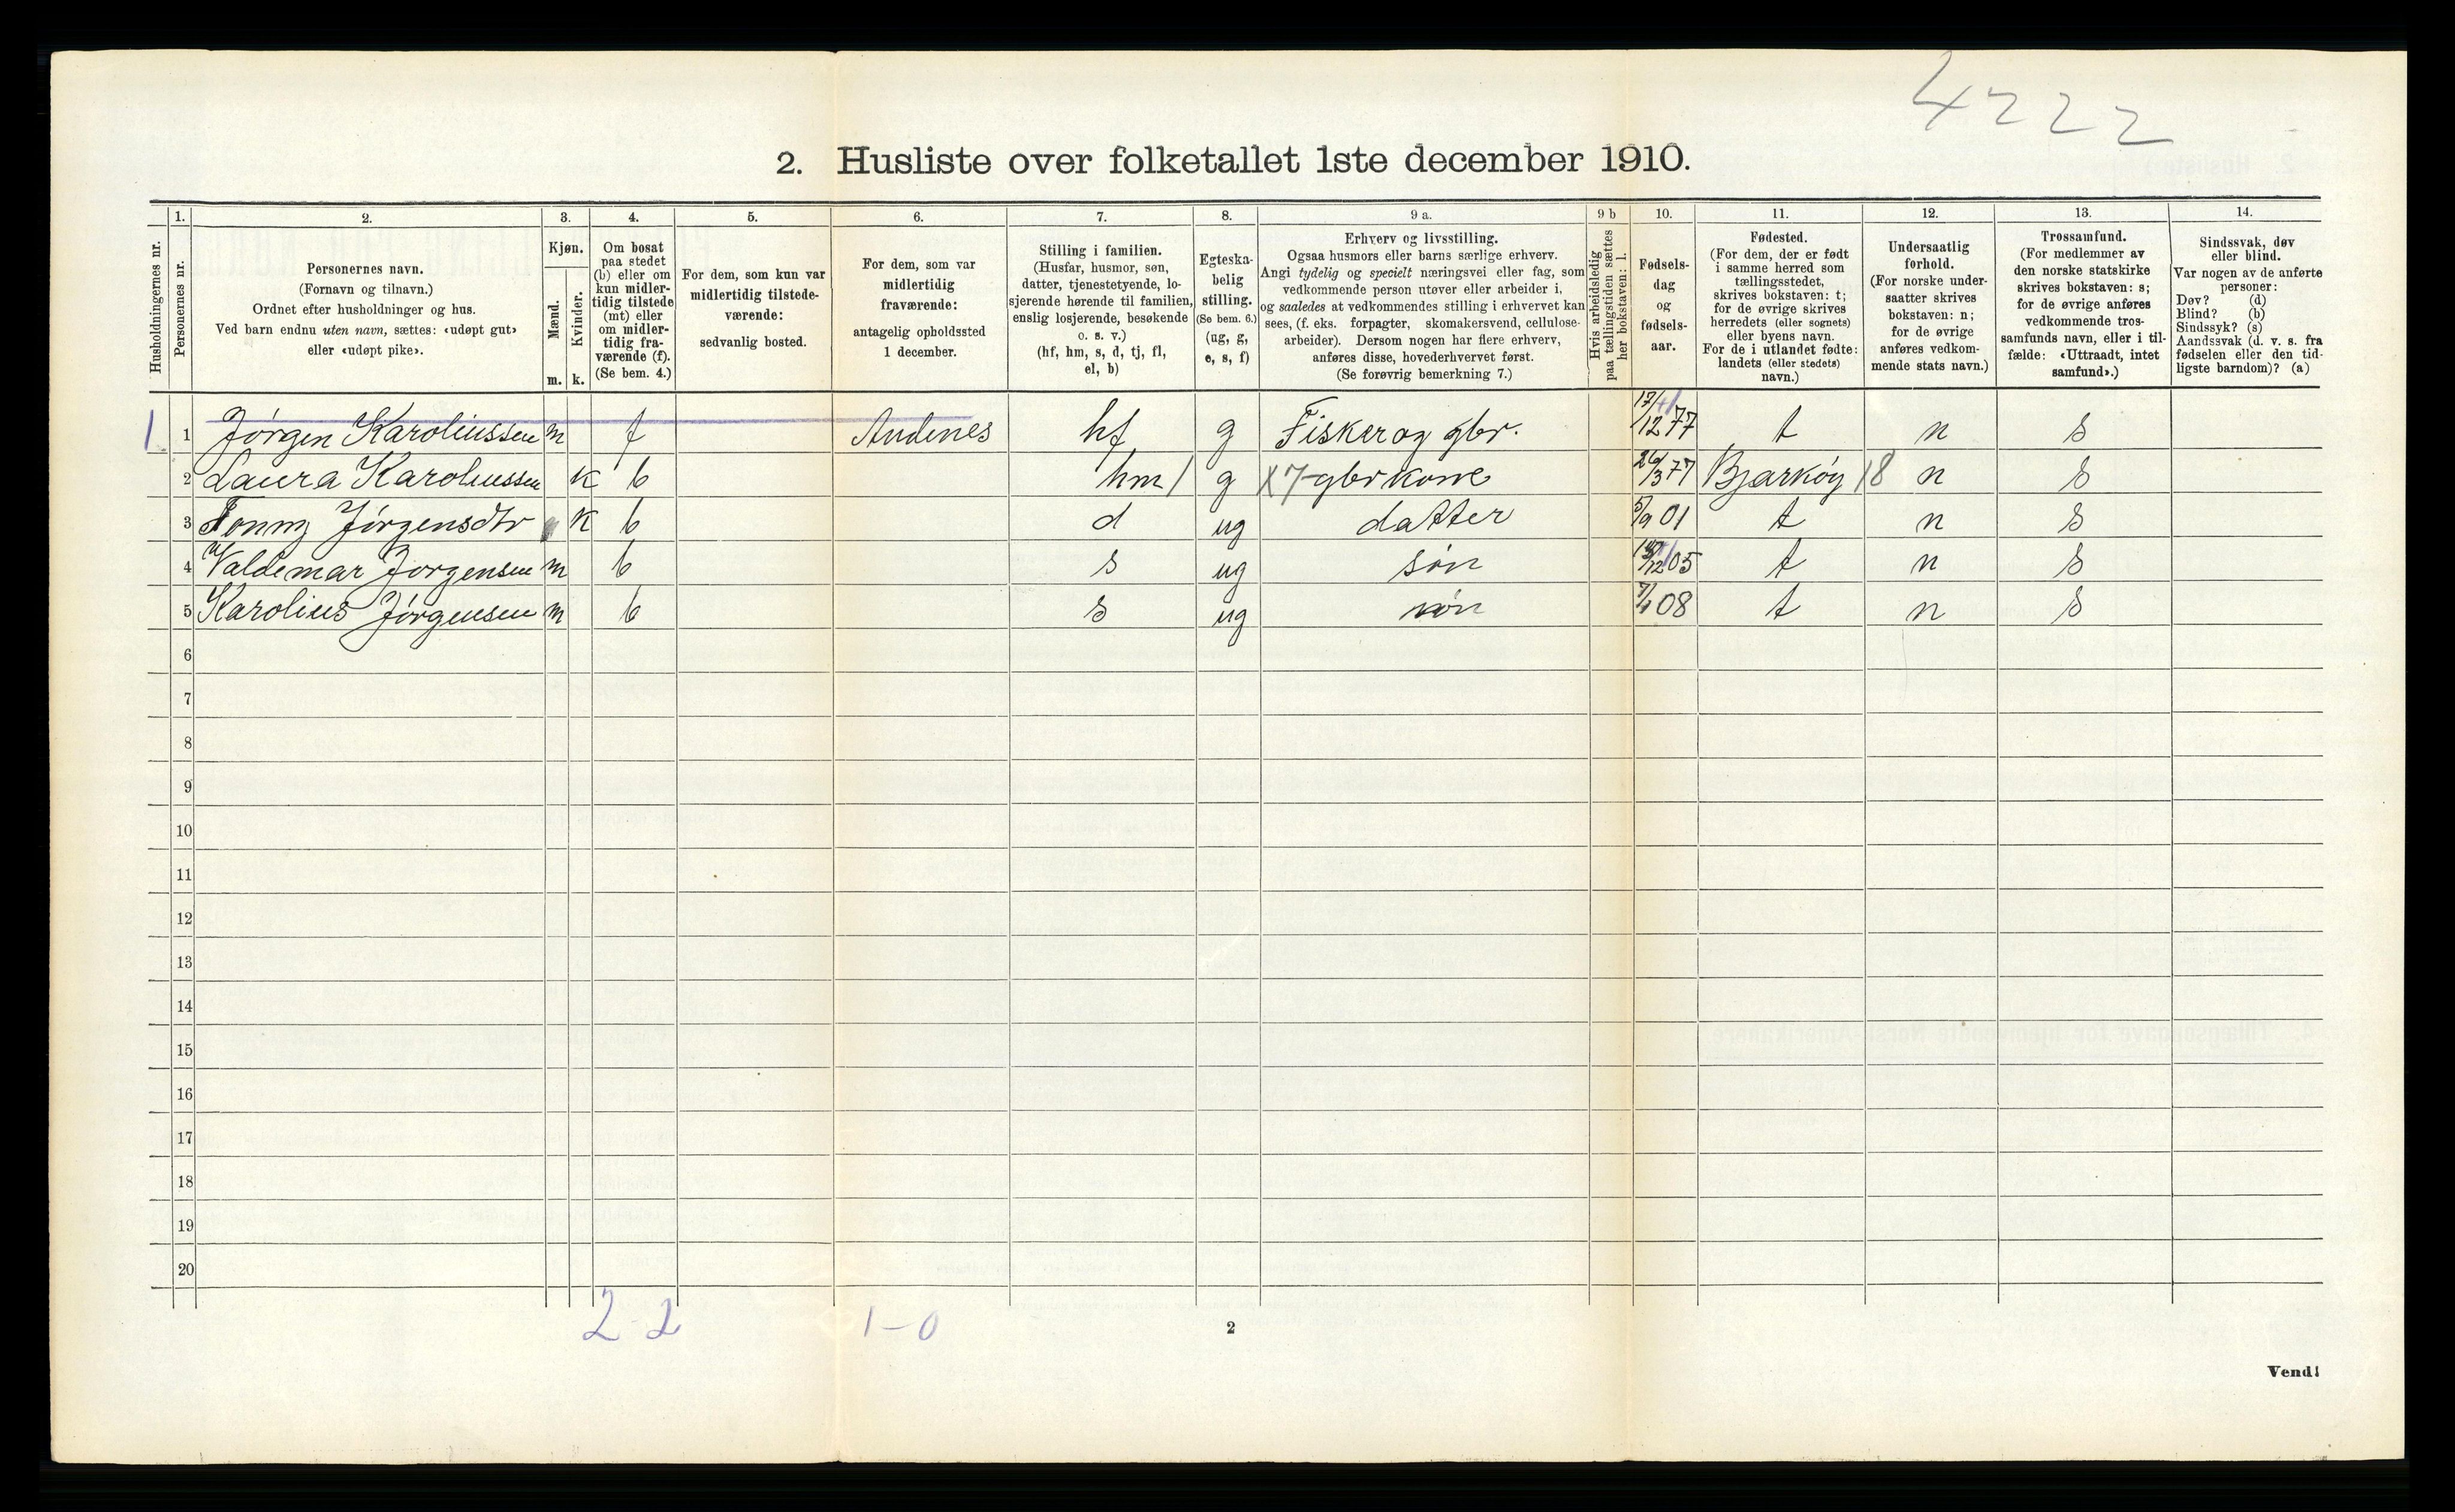 4222
2. Husliste over folketallet 1ste december 1910.
Husholdningernes nr.
1.
Personernes nr.
2.
Personernes navn.
(Fornavn og tilnavn.)
Ordnet efter husholdninger og hus.
Ved barn endnu uten navn, sættes: «udøpt gut»
eller «udøpt pike».
3.
Kjøn.
Mænd.
Kvinder.
m. k.
4.
Om bosat
paa stedet
(b) eller om
kun midler-
tidig tilstede
(mt) eller
om midler-
tidig fra-
værende (f).
(Se bem. 4.)
5.
For dem, som kun var
midlertidig tilstede-
værende:
sedvanlig bosted.
6.
For dem, som var
midlertidig
fraværende:
antagelig opholdssted
1 december.
7.
Stilling i familien.
(Husfar, husmor, søn,
datter, tjenestetyende, lo-
sjerende hørende til familien,
enslig losjerende, besøkende
o. s. v.)
(hf, hm, s, d, tj, fl,
el, b)
8.
Egteska-
belig
stilling.
(Se bem. 6.)
(ug, g,
e, s, f)
9 a.
Erhverv og livsstilling.
Ogsaa husmors eller barns særlige erhverv.
Angi tydelig og specielt næringsvei eller fag, som
vedkommende person utøver eller arbeider i,
og saaledes at vedkommendes stilling i erhvervet kan
sees, (f. eks. forpagter, skomakersvend, cellulose-
arbeider). Dersom nogen har flere erhverv,
anføres disse, hovederhvervet først.
(Se forøvrig bemerkning 7.)
9 b
Hvis arbeidsledig
paa tællingstiden sættes
her bokstaven: l.
10.
Fødsels-
dag
og
fødsels-
aar.
11.
Fødested.
(For dem, der er født
i samme herred som
tællingsstedet,
skrives bokstaven: t;
for de øvrige skrives
herredets (eller sognets)
eller byens navn.
For de i utlandet fødte:
landets (eller stedets)
navn.)
12.
Undersaatlig
forhold.
(For norske under-
saatter skrives
bokstaven: n;
for de øvrige
anføres vedkom-
mende stats navn.)
13.
Trossamfund.
(For medlemmer av
den norske statskirke
skrives bokstaven: s;
for de øvrige anføres
vedkommende tros-
samfunds navn, eller i til-
fælde: «Uttraadt, intet
samfund».)
14.
Sindssvak, døv
eller blind.
Var nogen av de anførte
personer:
Døv? (d)
Blind? (b)
Sindssyk? (s)
Aandssvak (d. v. s. fra
fødselen eller den tid-
ligste barndom)? (a)
1 1 Jørgen Karoliussen m f Andenes hf g Fisker og gbr. 17/12 77 t n s
2 Laura Karoliussen k b hm 1 g X7-gbrkone 26/3 77 Bjarkøy 18 n s
3 Jørgensdtr k b d ug datter 5/9 01 t n s
4 Valdemar Jørgensen m b s ug søn /12 05 t n s
5 Karolius Jørgensen m b s ug søn 08 t n s
6
7
8
9
10
11
12
13
14
15
16
17
18
19
20
2-2 1-0
2
Vend!